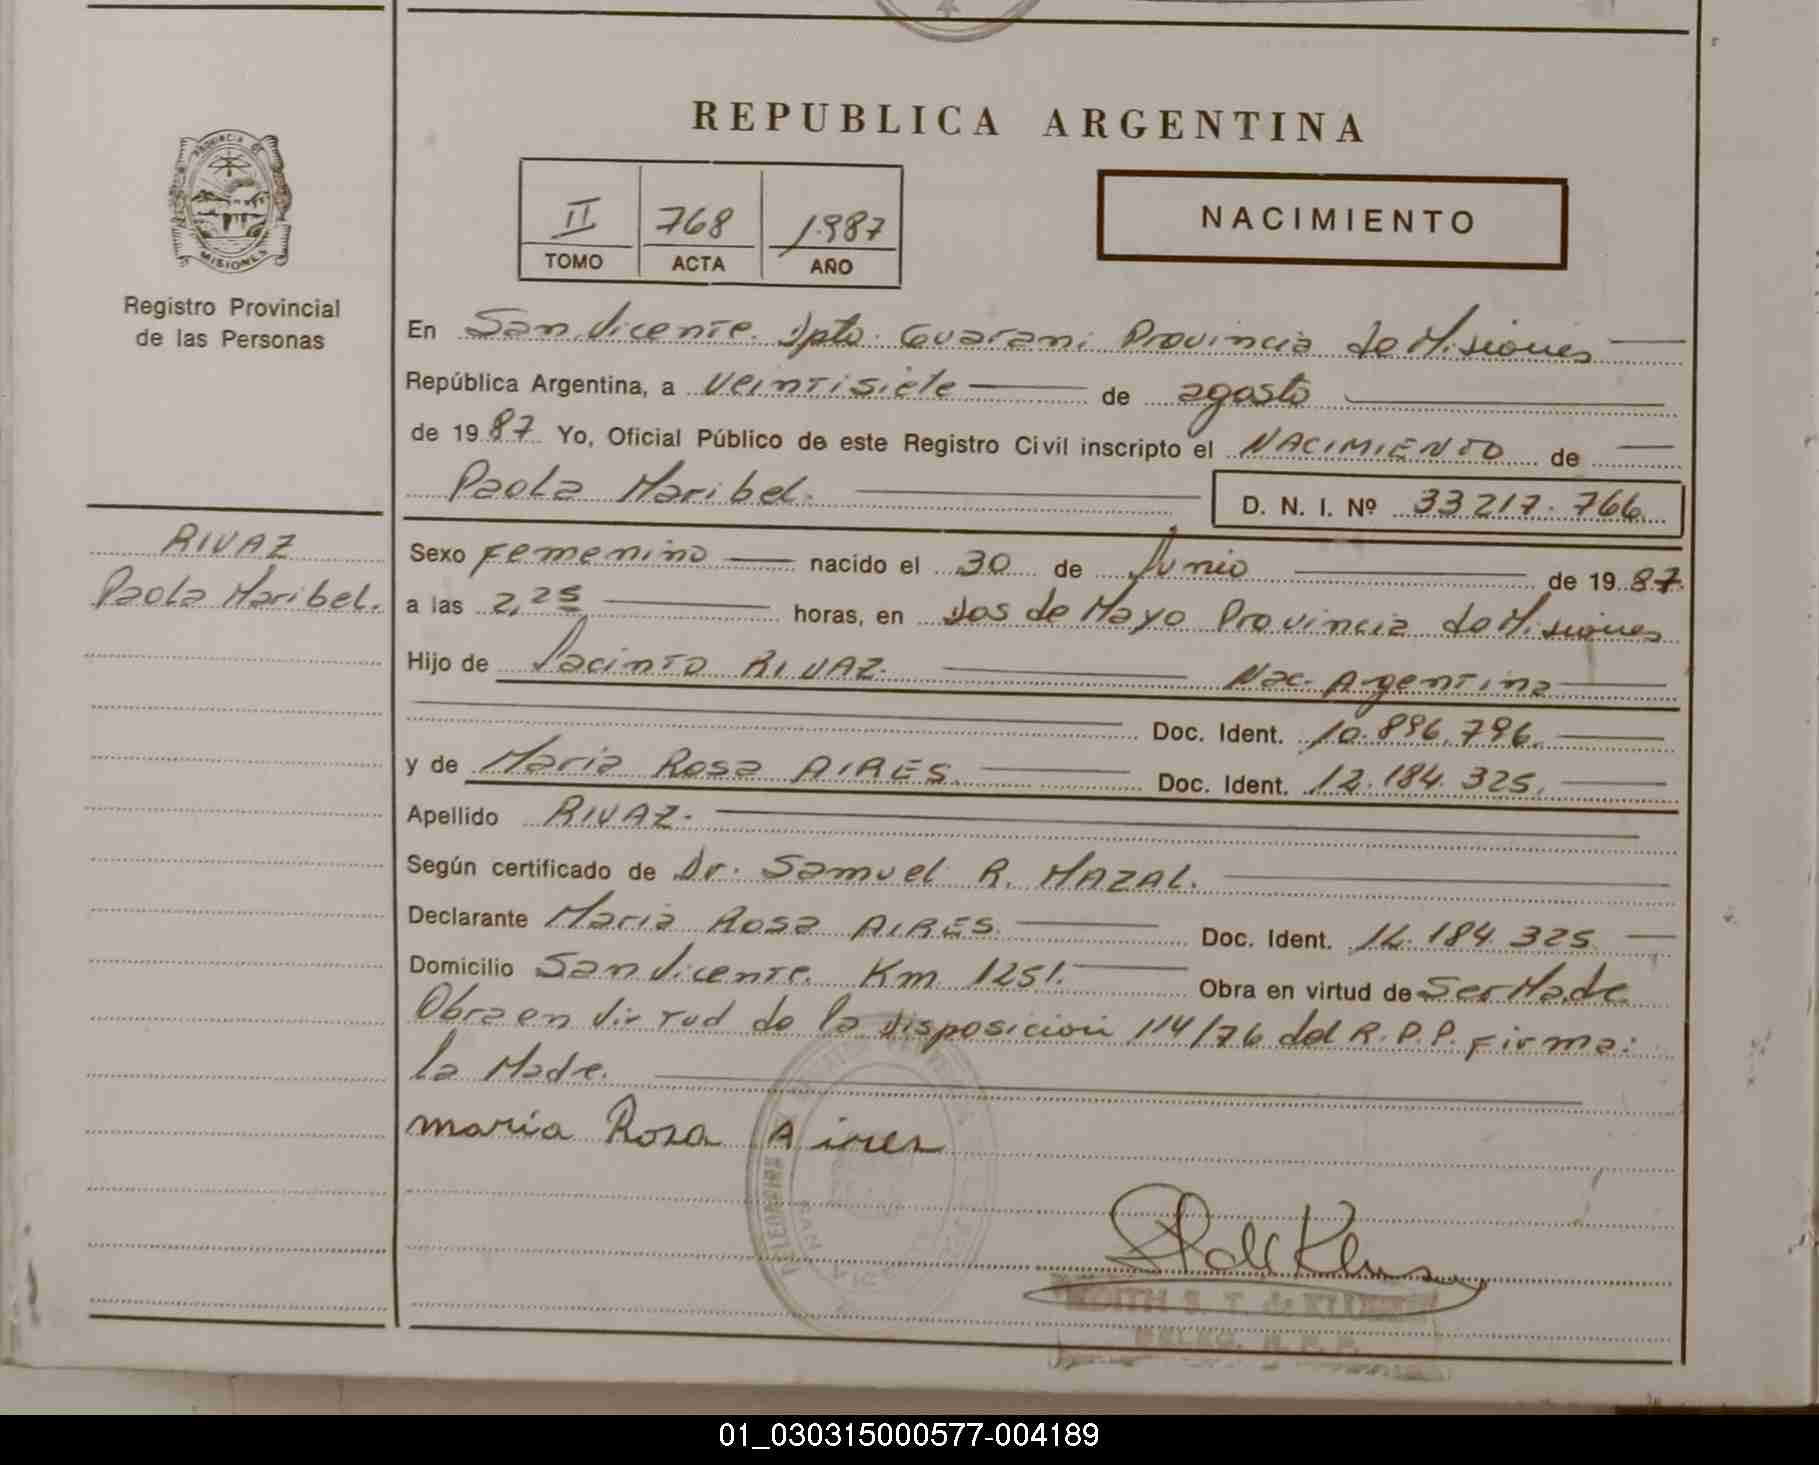 REPUBLICA ARGENTINA
PROVINCIA DE
MISIONES
Registro Provincial
de las Personas
II 768 1.987
TOMO ACTA AÑO
NACIMIENTO
En San Vicente. Dpto. Guarani Provincia de Misiones
República Argentina, a veintisiete de agosto
de 19 87 Yo, Oficial Público de este Registro Civil inscripto el NACIMIENTO de
Paola Maribel. D. N. I. Nº 33217.766
RIVAZ
Paola Maribel.
Sexo femenino nacido el 30 de Junio de 19 87.
a las 2,25 horas, en Dos de Mayo Provincia de Misiones
Hijo de Jacinto RIVAZ. Nac. Argentina
Doc. Ident. 10.896.796.
y de Maria Rosa AIRES. Doc. Ident. 12.184.325.
Apellido RIVAZ.
Según certificado de Dr. Samuel R. MAZAL.
Declarante Maria Rosa AIRES. Doc. Ident. 12.184.325
Domicilio San Vicente. Km 1251. Obra en virtud de Ser Madre
Obra en virtud de la disposicion 114/76 del R.P.P. Firma:
la Madre.
maria Rosa Aires
EDITH S. T. de
DELEG. R. P. P.
01_030315000577-004189